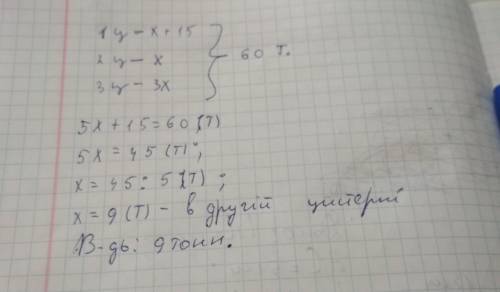 1 ц – x + 15
2 ц – x
3 ц – 3x
60 т.
5x + 15 = 60 (т)
5x = 45 (т);
x = 45 : 5 (т);
x = 9 (т) – в другій цистерні
В-дь: 9 тонн.